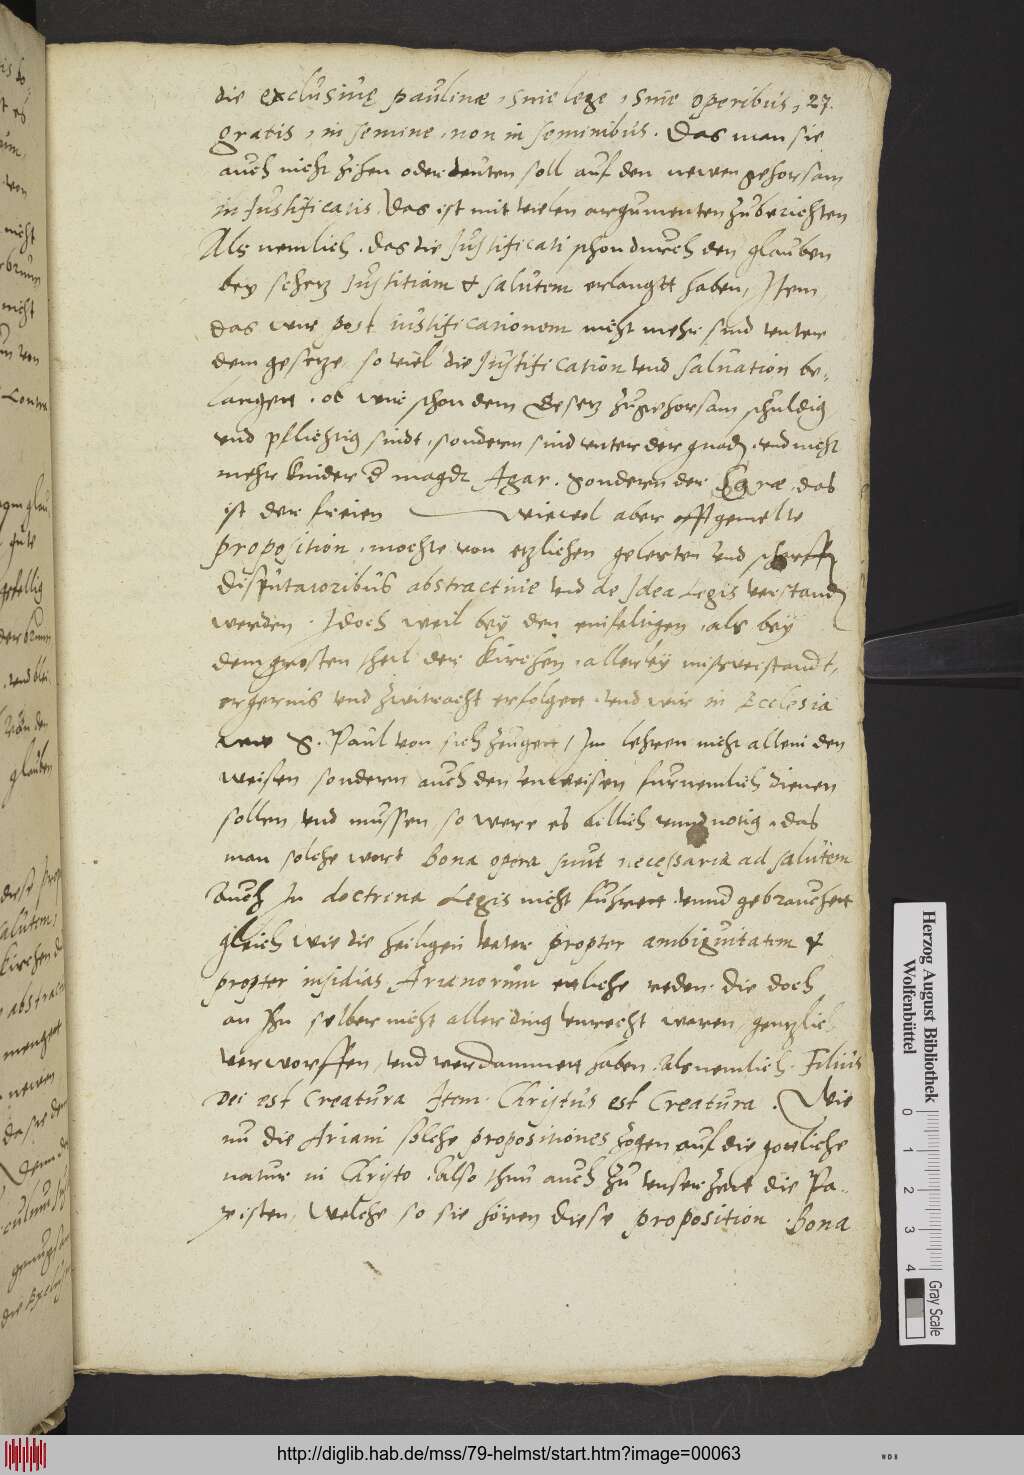 die exclusiuę paulinæ, sine lege, sine operibus, 27.
gratis, in semine, non in seminibus. Das man sie
auch nicht zihen oder deuten soll auf den newen gehorsam
in Justificatis. Das ist mit vielen argumenten zuberichten
Als nemlich. das die Justificati schon durch den glauben
bey Justitiam & salutem erlangtt haben, Item
das wir post iustificationem nicht mehr sind unter
dem gesetze, so viel die Justification vnd saluation be-
langett. ob wir schon dem Gesetz zu gehorsam schuldig
vnd pflichtig sindt, sondern sind unter der gnad, vnd nicht
mehr kinder d magdt Agar. sondern der Saræ, das
ist der freien wiewol aber offtgemelte
proposition, mochte von etzlichen gelerten und scherffn
disputatoribus abstractiue vnd de Idea Legis verstand
werden. Jdoch weil bey den einfeltigen, als bey
dem grosten theil der Kirchen, allerley misverstandt,
ergernis vnd zwitracht erfolgett, vnd wir in Ecclesia
wie S. Paul von sich zeugett, Im lehren nicht allein den
weisen sondern auch den unweisen furnemlich dienen
sollen vnd mussen, so were es billich vnnd notig, das
man solche wort bona opera sunt necessaria ad salutem
auch In doctrina Legis nicht fuhrett vnnd gebrauchett
gleich wie die heiligen Veter propter ambiguitatem &
propter insidias Arianorum etzliche reden, die doch
an Ihn selber nicht aller ding unrecht waren, gentzlich
verworffen, vnd verdammett haben. Als nemlich. Filius
Dei est Creatura Item. Christus est Creatura. Wie
nu die Ariani solche propositiones zogen auf die gottliche
natur in Christo. also thun auch zu unser Zeit die Pa-
pisten, Welche so sie hören diese proposition. Bona
Herzog August Bibliothek
Wolfenbüttel
0 1 2 3 4
Gray Scale
http://diglib.hab.de/mss/79-helmst/start.htm?image=00063